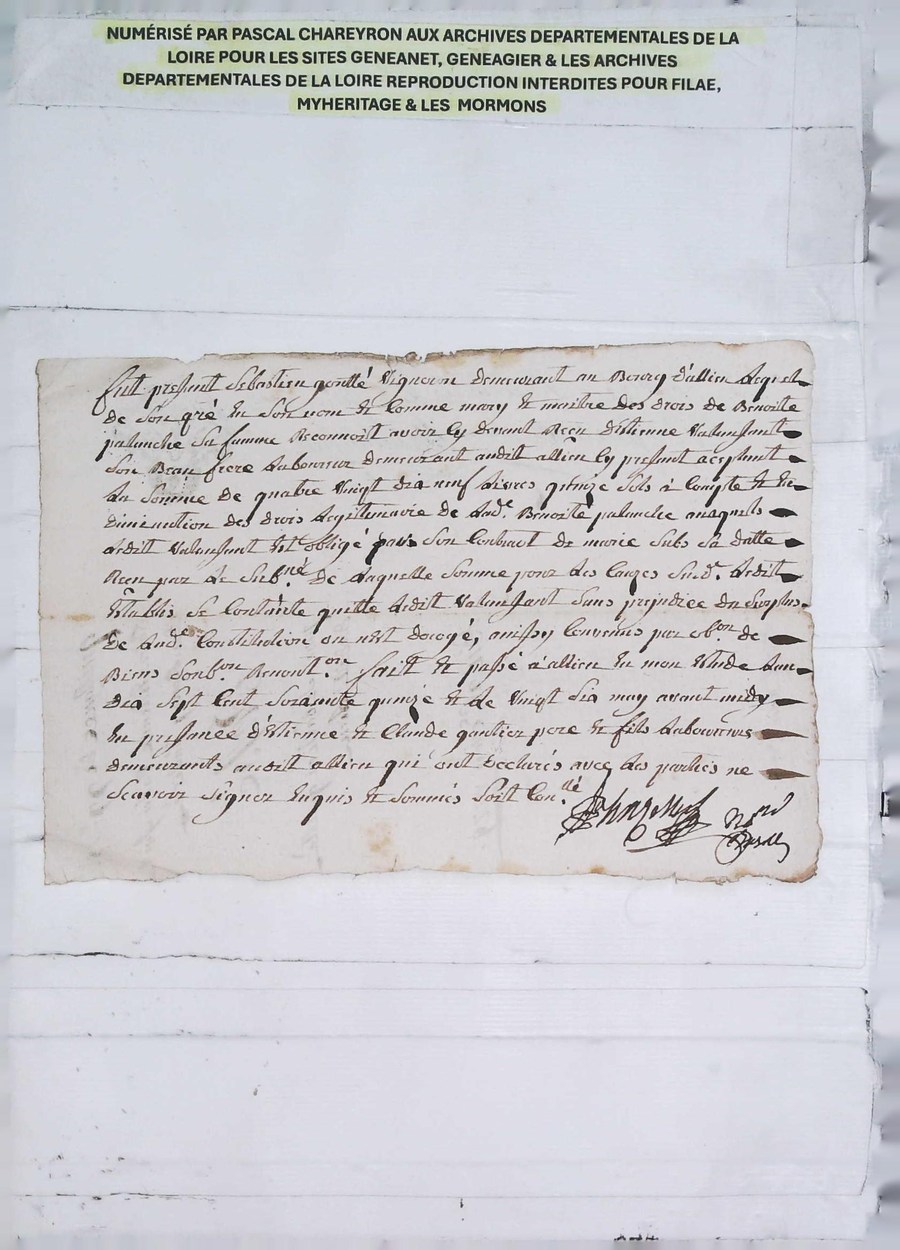 NUMÉRISÉ PAR PASCAL CHAREYRON AUX ARCHIVES DEPARTEMENTALES DE LA
LOIRE POUR LES SITES GENEANET, GENEAGIER & LES ARCHIVES
DEPARTEMENTALES DE LA LOIRE REPRODUCTION INTERDITES POUR FILAE,
MYHERITAGE & LES MORMONS
fut present Sebastien goutté Vigneron demeurant au Bourg d'allieu Lequel
De Son gré En Son nom Et Comme mary Et maitre Des Drois De Benoite
palanche Sa famme Reconnoit avoir Cy Devant Receu D'Etienne Valensant
Son Beau frere Laboureur Demeurant audit allieu Cy present aceptant
La Somme De quatre Vingt Dix neuf Livres quinze Sols à Compte Et En
Diminution Des Drois Legitimaire De Lad.e Benoite palanche auxquels
Ledit Valensant Est obligé par Son Contract De marie Subs Sa Datte
Receu par Le Sub.né De Laquelle Somme pour Les Cauzes Susd. Ledit
Etablis Se Contante quitte Ledit Valensant Sans prejudice Du Surplus
De Lad.e Constitution ou n'est Derogé, ainssy Convenus par ob.on De
Biens Renont.on fait Et passé à allieu En mon Etude L'an
Dix Sept Cent Soixante quinze Et Le Vingt Six may avant midy
En presance D'Etienne Et Claude gautier pere Et fils Laboureurs
demeurants audit allieu qui ont Declarés avec Les parties ne
Scavoir Signer Enquis Et Sommés Soit Con.llé